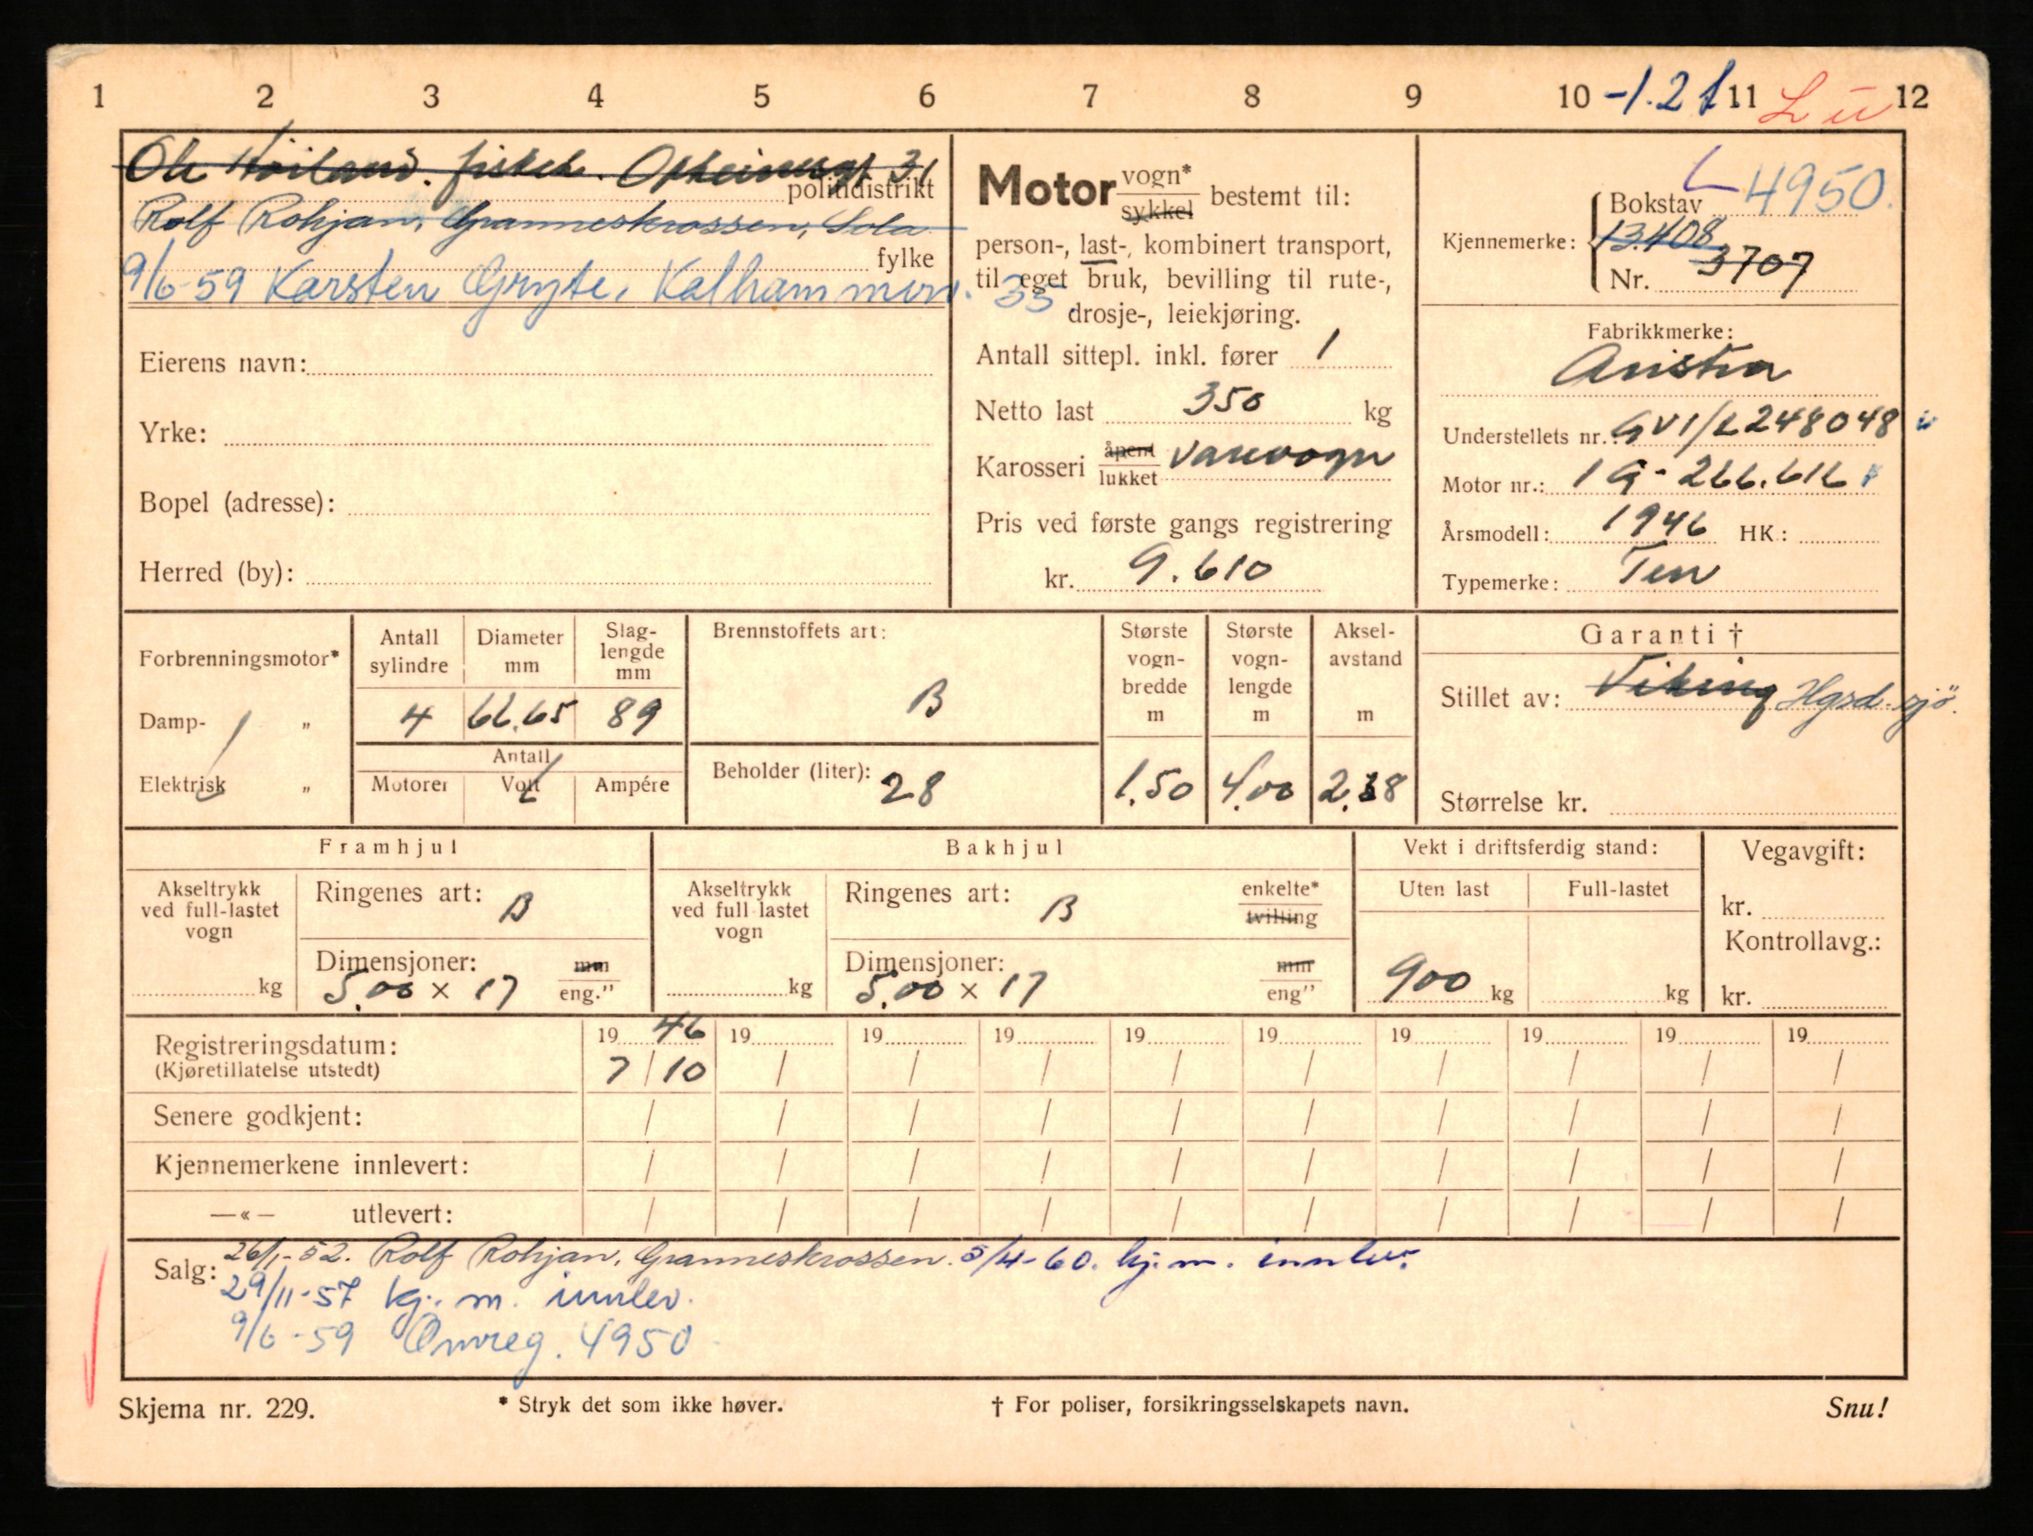 1 2 3 4 5 6 7 8 9 10 -1.21 11 L u 12
Ole Höiland. fisker. Opheimsgt 31
politidistrikt
Rolf Rohjan, Granneskrossen, Sola
fylke
9/6-59 Karsten Gryte, Kalhammerv. 33
Eierens navn:
Yrke:
Bopel (adresse):
Herred (by):
Motor vogn* sykkel bestemt til:
person-, last-, kombinert transport,
til eget bruk, bevilling til rute-,
drosje-, leiekjøring.
Antall sittepl. inkl. fører 1
Netto last 350 kg
Karosseri åpent lukket varevogn
Pris ved første gangs registrering
kr. 9.610
L 4950.
Kjennemerke: Bokstav
13.408
Nr. 3707
Fabrikkmerke:
Austin
Understellets nr.: GV1/L248048
Motor nr.: 1G-266.616
Årsmodell: 1946 HK:
Typemerke: Ten
Forbrenningsmotor*
Damp- „
Elektrisk „
Antall sylindre
Diameter mm
Slag-lengde mm
4 66.65 89
Antall
Motorer Volt Ampére
Brennstoffets art:
B
Beholder (liter): 28
Største vogn-bredde m
Største vogn-lengde m
Aksel-avstand m
1.50 4.00 2.38
Garanti †
Stillet av: Viking Hgsd. sjö.
Størrelse kr.
Framhjul
Akseltrykk ved full-lastet vogn
kg
Ringenes art: B
Dimensjoner: 5.00 x 17 mm eng."
Bakhjul
Akseltrykk ved full lastet vogn
kg
Ringenes art: B enkelte* tvilling
Dimensjoner: 5.00 x 17 mm eng"
Vekt i driftsferdig stand:
Uten last Full-lastet
900 kg kg
Vegavgift:
kr.
Kontrollavg.:
kr.
Registreringsdatum: 19 46 19 19 19 19 19 19 19 19 19
(Kjøretillatelse utstedt) 7/10 / / / / / / / / /
Senere godkjent: / / / / / / / / / /
Kjennemerkene innlevert: / / / / / / / / / /
—«— utlevert: / / / / / / / / / /
Salg: 26/1-52. Rolf Rohjan, Granneskrossen. 5/4-60. kj.m. innlev.
29/11-57 kj. m. innlev.
9/6-59 Omreg. 4950
Skjema nr. 229. * Stryk det som ikke høver. † For poliser, forsikringsselskapets navn. Snu!